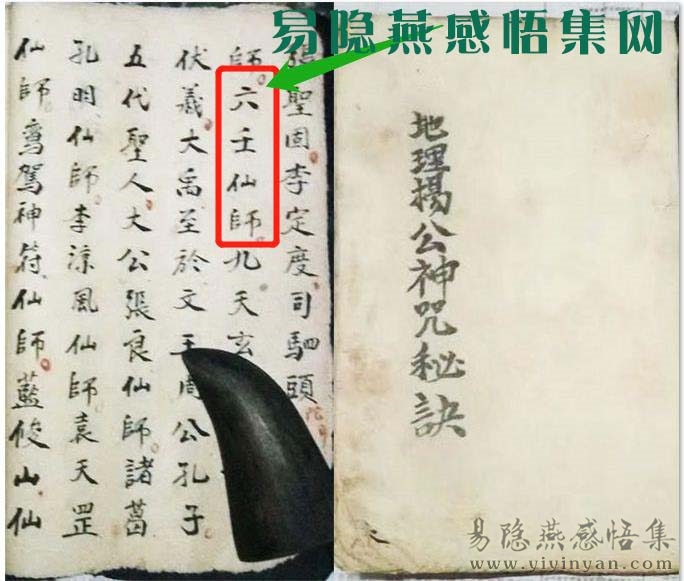 易隐燕感悟集网
張聖固李定度司馹頭
師六壬仙師九天玄
伏義大禹至於文王周公孔子
五代聖人大公張良仙師諸葛
孔明仙師李涼風仙師袁天罡
仙師鸾駕神符仙師藍俊山仙
地理楊公神咒秘訣
易隐燕感悟集
www.yiyinyan.com